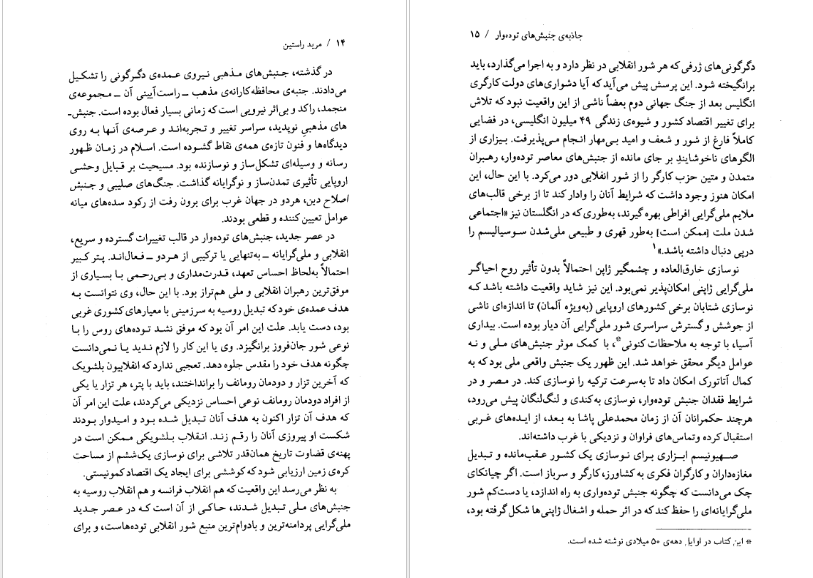 ۱۴ / مرید راستین
در گذشته، جنبش‌های مذهبی نیروی عمده‌ی دگرگونی را تشکیل
می‌دادند. جنبه‌ی محافظه‌کارانه‌ی مذهب ــ راست‌آیینی آن ــ مجموعه‌ی
منجمد، راکد و بی‌اثر نیرویی است که زمانی بسیار فعال بوده است. جنبش‌ـ
های مذهبی نوپدید، سراسر تغییر و تجربه‌اند و عرصه‌ی آنها به روی
دیدگاه‌ها و فنون تازه‌ی همه‌ی نقاط گشوده است. اسلام در زمان ظهور
رسانه و وسیله‌ای تشکل‌ساز و نوسازنده بود. مسیحیت بر قبایل وحشی
اروپایی تأثیری تمدن‌ساز و نوگرایانه گذاشت. جنگ‌های صلیبی و جنبش
اصلاح دین، هر دو در جهان غرب برای برون رفت از رکود سده‌های میانه
عوامل تعیین کننده و قطعی بودند.
در عصر جدید، جنبش‌های توده‌وار در قالب تغییرات گسترده و سریع،
انقلابی و ملی‌گرایانه ــ به‌تنهایی یا ترکیبی از هر دو ــ فعال‌اند. پتر کبیر
احتمالاً به‌لحاظ احساس تعهد، قدرت‌مداری و بی‌رحمی با بسیاری از
موفق‌ترین رهبران انقلابی و ملی هم‌تراز بود. با این حال، وی نتوانست به
هدف عمده‌ی خود که تبدیل روسیه به سرزمینی با معیارهای کشوری غربی
بود، دست یابد. علت این امر آن بود که موفق نشد توده‌های روس را با
نوعی شور جان‌فروز برانگیزد. وی یا این کار را لازم ندید یا نمی‌دانست
چگونه هدف خود را مقدس جلوه دهد. تعجبی ندارد که انقلابیون بلشویک
که آخرین تزار و دودمان رومانف را برانداختند، باید با پتر، هر تزار یا یکی
از افراد دودمان رومانف نوعی احساس نزدیکی می‌کردند، علت این امر آن
که هدف آن تزار اکنون به هدف آنان تبدیل شده بود و امیدوار بودند
شکست او پیروزی آنان را رقم زند. انقلاب بلشویکی ممکن است در
پهنه‌ی قضاوت تاریخ همان‌قدر تلاشی برای نوسازی یک‌ششم از مساحت
کره‌ی زمین ارزیابی شود که کوششی برای ایجاد یک اقتصاد کمونیستی.
به نظر می‌رسد این واقعیت که هم انقلاب فرانسه و هم انقلاب روسیه به
جنبش‌های ملی تبدیل شدند، حاکی از آن است که در عصر جدید
ملی‌گرایی پردامنه‌ترین و بادوام‌ترین منبع شور انقلابی توده‌هاست، و برای
جاذبه‌ی جنبش‌های توده‌وار / ۱۵
دگرگونی‌های ژرفی که هر شور انقلابی در نظر دارد و به اجرا می‌گذارد، باید
برانگیخته شود. این پرسش پیش می‌آید که آیا دشواری‌های دولت کارگری
انگلیس بعد از جنگ جهانی دوم بعضاً ناشی از این واقعیت نبود که تلاش
برای تغییر اقتصاد کشور و شیوه‌ی زندگی ۴۹ میلیون انگلیسی، در فضایی
کاملاً فارغ از شور و شعف و امید بی‌مهار انجام می‌پذیرفت. بیزاری از
الگوهای ناخوشایندِ بر جای مانده از جنبش‌های معاصر توده‌وار، رهبران
متمدن و متین حزب کارگر را از شور انقلابی دور می‌کرد. با این حال، این
امکان هنوز وجود داشت که شرایط آنان را وادار کند تا از برخی قالب‌های
ملایم ملی‌گرایی افراطی بهره گیرند، به‌طوری‌که در انگلستان نیز «اجتماعی
شدن ملت [ممکن است] به‌طور قهری و طبیعی ملی‌شدن سوسیالیسم را
درپی دنبال داشته باشد.»۱
نوسازی خارق‌العاده و چشمگیر ژاپن احتمالاً بدون تأثیر روح احیاگر
ملی‌گرایی ژاپنی امکان‌پذیر نمی‌بود. این نیز شاید واقعیت داشته باشد که
نوسازی شتابان برخی کشورهای اروپایی (به‌ویژه آلمان) تا اندازه‌ای ناشی
از جوشش و گسترش سراسری شور ملی‌گرایی آن دیار بوده است. بیداری
آسیا، با توجه به ملاحظات کنونی*، با کمک موثر جنبش‌های ملی و نه
عوامل دیگر محقق خواهد شد. این ظهور یک جنبش واقعی ملی بود که به
کمال آتاتورک امکان داد تا به‌سرعت ترکیه را نوسازی کند. در مصر و در
شرایط فقدان جنبش توده‌وار، نوسازی به‌کندی و لنگ‌لنگان پیش می‌رود،
هرچند حکمرانان آن از زمان محمدعلی پاشا به بعد، از ایده‌های غربی
استقبال کرده و تماس‌های فراوان و نزدیکی با غرب داشته‌اند.
صـهیونیسم ابزاری برای نوسازی یک کشور عقب‌مانده و تبدیل
مغازه‌داران و کارگران فکری به کشاورز، کارگر و سرباز است. اگر چیانکای
چک می‌دانست که چگونه جنبش توده‌واری به راه اندازد، یا دست‌کم شور
ملی‌گرایانه‌ای را حفظ کند که در اثر حمله و اشغال ژاپنی‌ها شکل گرفته بود،
* این کتاب در اوایل دهه‌ی ۵۰ میلادی نوشته شده است.